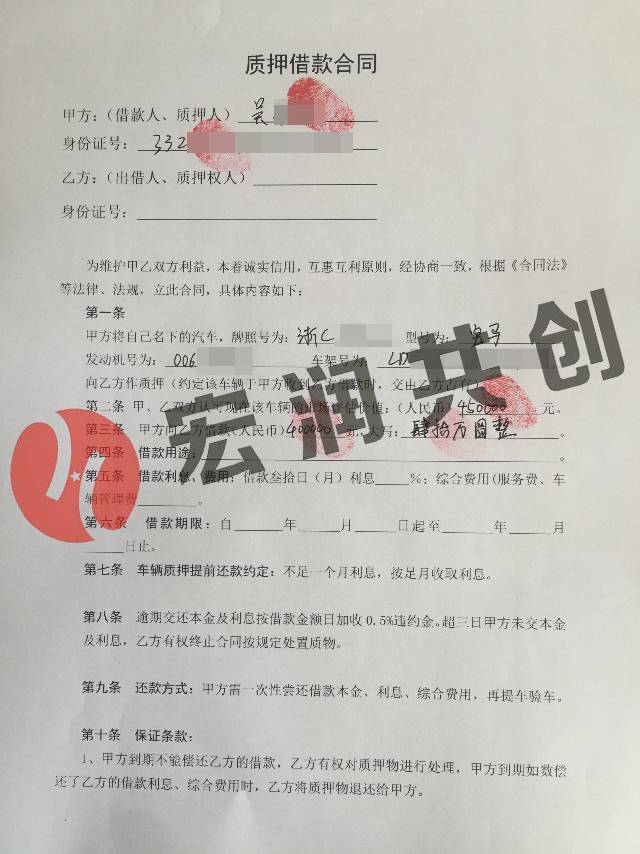 质押借款合同
甲方：（借款人、质押人） 吴
身份证号： 332
乙方：（出借人、质押权人）
身份证号：
为维护甲乙双方利益，本着诚实信用，互惠互利原则，经协商一致，根据《合同法》
等法律、法规，立此合同，具体内容如下：
第一条
甲方将自己名下的汽车，牌照号为：浙C 型号为： 宝马
发动机号为： 006 车架号为： LD
向乙方作质押（约定该车辆于甲方收到乙方借款时，交由乙方占有）
第二条 甲、乙双方认可现在该车辆的市场评估价值：（人民币） 450000 元。
第三条 甲方向乙方借款（人民币）400000 元，大写： 肆拾万圆整 。
第四条 借款用途： 。
第五条 借款利息、费用：借款叁拾日（月）利息 %；综合费用（服务费、车
辆管理费 。
第六条 借款期限：自 年 月 日起至 年 月
日止。
第七条 车辆质押提前还款约定：不足一个月利息，按足月收取利息。
第八条 逾期交还本金及利息按借款金额日加收 0.5%违约金。超三日甲方未交本金
及利息，乙方有权终止合同按规定处置质物。
第九条 还款方式：甲方需一次性尝还借款本金、利息、综合费用，再提车验车。
第十条 保证条款：
1、甲方到期不能偿还乙方的借款，乙方有权对质押物进行处理，甲方到期如数偿
还了乙方的借款利息、综合费用时，乙方将质押物退还给甲方。
宏润共创